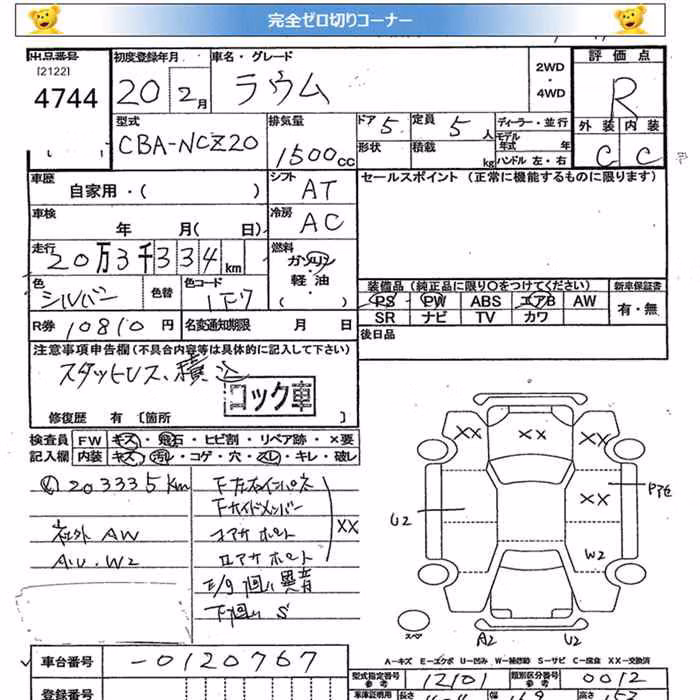 完全ゼロ切りコーナー
出品番号 初度登録年月 車名・グレード 評価点
[2122]
4744 20 2月 ラウム 2WD ・ 4WD R
型式 CBA-NCZ20 排気量 1500cc ドア 5 定員 5人 ディーラー・並行 外装 内装
形状 積載 kg モデル年式 年 ハンドル 左・右 C C
車歴 自家用・( ) シフト AT セールスポイント (正常に機能するものに限ります)
車検 年 月( 日) 冷房 AC
走行 20万3千334km 燃料 ガソリン・軽油・( )
色 シルバー 色替 色コード 1F7 装備品(純正品に限り○をつけてください) 新車保証書
PS PW ABS エアB AW 有・無
SR ナビ TV カワ
R券 10810円 名変通知期限 月 日 後日品
注意事項申告欄(不具合内容等は具体的に記入して下さい)
スタットレス、積込
コック車
修復歴 有〔箇所 〕
検査員 FW キズ・飛石・ヒビ割・リペア跡・×要
記入欄 内装 キズ・汚レ・コゲ・穴・スレ・キレ・破レ
203335km
社外 AW
A11.W2
コアサポート
異音
XX
XX XX XX
XX
U2 W2
スペア A2 U2
A-キズ E-エクボ U-凹み W-補修跡 S-サビ C-腐食 X-交換済
車台番号 -0120767
型式指定番号 12101 類別区分番号 0012
登録番号 車庫証明用 長さ